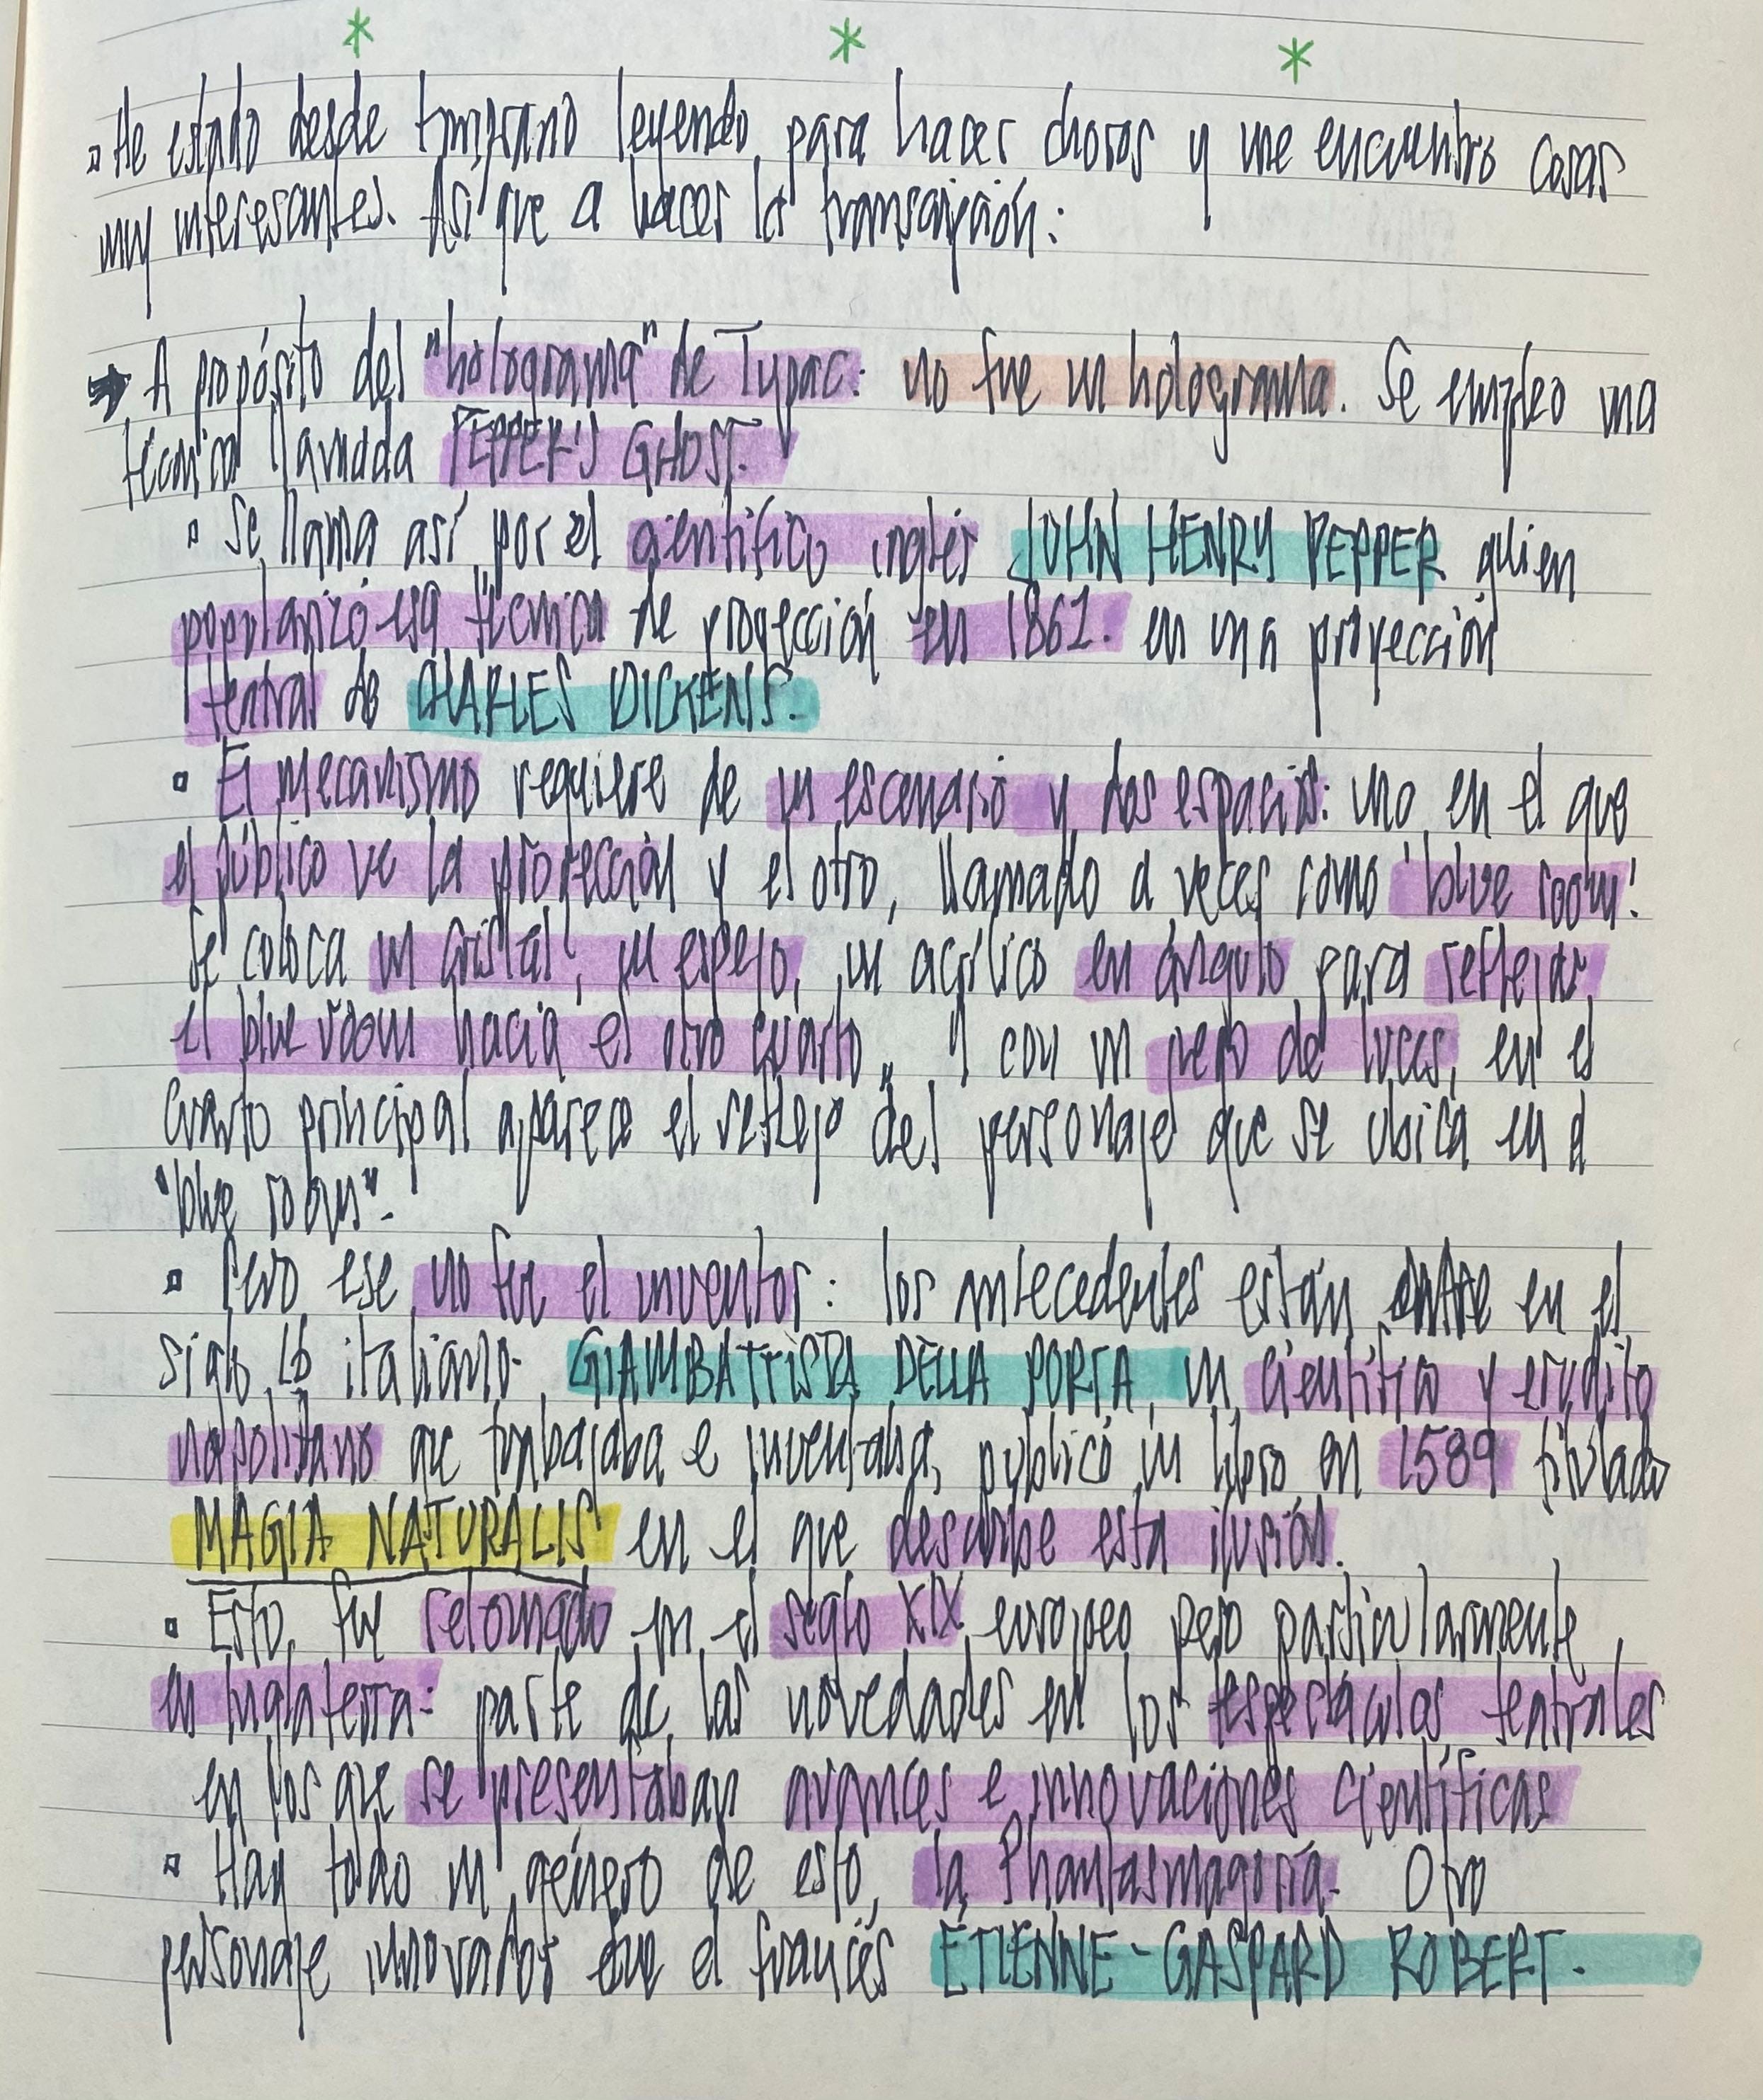 * * *
▫ He estado desde temprano leyendo para hacer choros y me encuentro cosas
muy interesantes. Así que a hacer la transcripción:
➡ A propósito del "holograma" de Tupac: no fue un holograma. Se empleo una
técnica llamada PEPPER'S GHOST.
▫ Se llama así por el científico inglés JOHN HENRY PEPPER quien
popularizó esa técnica de proyección en 1862. en una proyección
teatral de CHARLES DICKENS.
▫ El mecanismo requiere de un escenario y dos espacios: uno en el que
el público ve la proyección y el otro, llamado a veces como 'blue room'.
Se coloca un cristal, un espejo, un acrílico en ángulo para reflejar
el blue room hacia el otro cuarto. Y con un juego de luces, en el
cuarto principal aparece el reflejo del personaje que se ubica en el
"blue room".
▫ Pero ese no fue el inventor: los antecedentes están en el
siglo 16 italiano. GIAMBATTISTA DELLA PORTA, un científico y erudito
napolitano que trabajaba e inventaba, publicó un libro en 1589 titulado
MAGIA NATURALIS en el que describe esta ilusión.
▫ Esto fue retomado en el siglo XIX europeo pero particularmente
en Inglaterra: parte de las novedades en los espectáculos teatrales
en los que se presentaban avances e innovaciones científicas
▫ Hay todo un género de esto, la Phantasmagoria. Otro
personaje innovador fue el francés ÉTIENNE-GASPARD ROBERT.